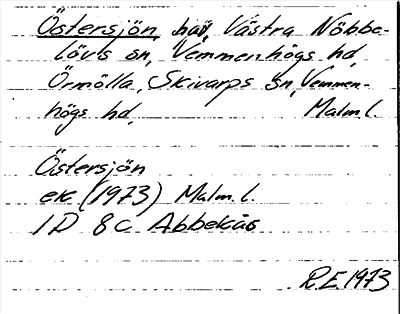 Östersjön, hav, Västra Nöbbe-
lövs sn, Vemmenhögs hd,
Örmölla, Skivarps sn, Vemmen-
högs hd, Malm. l.
Östersjön
ek (1973) Malm. l.
1D 8c Abbekås
R.E. 1973